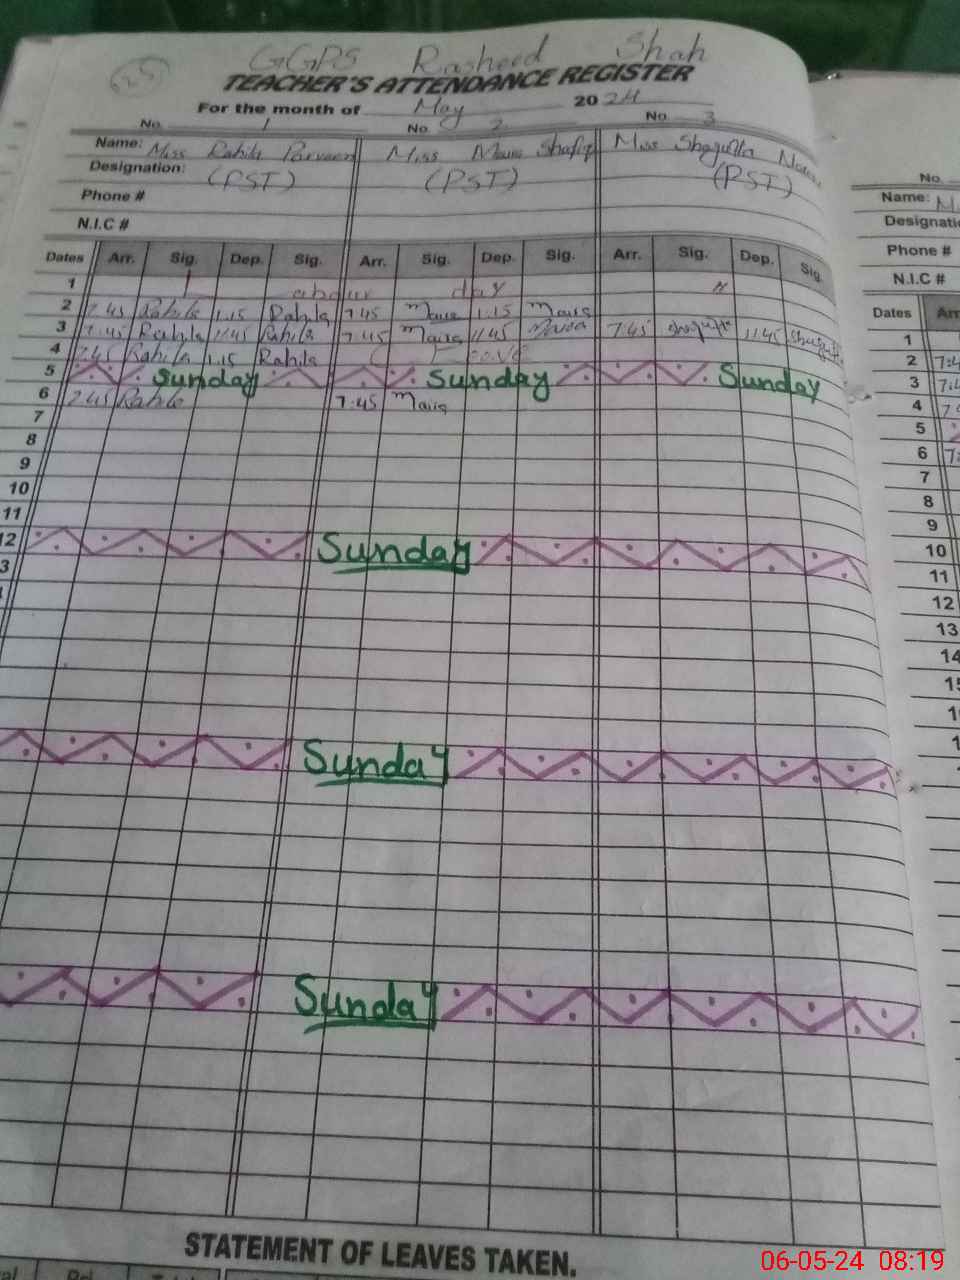 25
GGPS Rasheed Shah
TEACHER'S ATTENDANCE REGISTER
For the month of May 2024
No. 1 No 2 No 3
Name: Miss Rahila Parveen Miss Maira Shafiq Miss Shagufta
Designation: (PST) (PST) (PST)
Phone #
N.I.C #
Dates Arr. Sig. Dep. Sig. Arr. Sig. Dep. Sig. Arr. Sig. Dep. Sig.
1 Labour day "
2 7.45 Rahila 1.15 Rahila 7.45 Maira 1.15 Maira
3 7:45 Rahila 11.45 Rahila 7:45 Maira 11.45 Maira 7.45 Shagufta 11.45 Shagufta
4 7.45 Rahila 1.15 Rahila Leave
5 Sunday Sunday Sunday
6 7.45 Rahila 7:45 Maira
7
8
9
10
11
12 Sunday
3
Sunday
Sunday
STATEMENT OF LEAVES TAKEN.
No.
Name: M
Designati
Phone #
N.I.C #
Dates Arr
1
2 7:4
3 7:4
4 7
5
6 7:
7
8
9
10
11
12
13
14
15
06-05-24 08:19